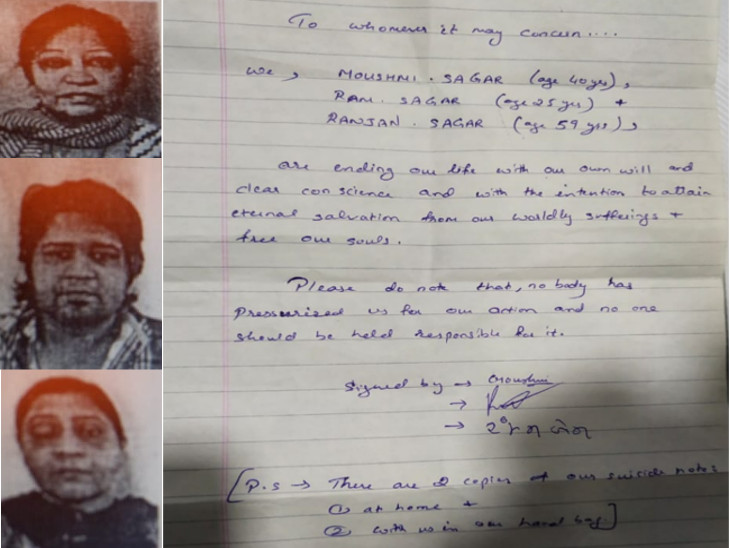 To whomever it may concern....
We, MOUSHMI. SAGAR (age 40 yrs),
RAM. SAGAR (age 25 yrs) +
RANJAN. SAGAR (age 59 yrs),
are ending our life with our own will and
clear conscience and with the intention to attain
eternal salvation from our worldly sufferings +
free our souls.
Please do note that, no body has
pressurized us for our action and no one
should be held responsible for it.
Signed by → Moushmi
→
→
[P.S → There are 2 copies of our suicide notes
① at home +
② with us in our hand bag]